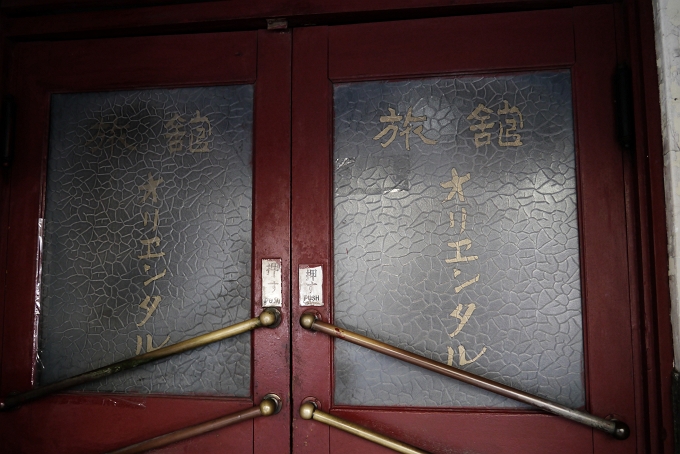 旅舘
オリエンタル
押す
PUSH
旅舘
オリエンタル
押す
PUSH